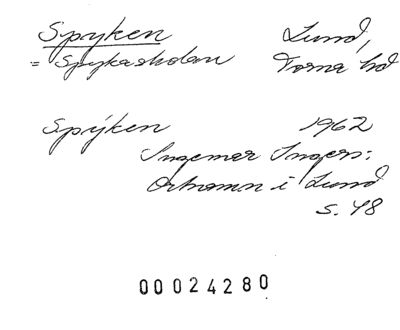 Spyken Lund,
= Spykaskolan Torna hd
Spýken 1962
Ingemar Ingers:
Ortnamn i Lund
s. 48
00024280